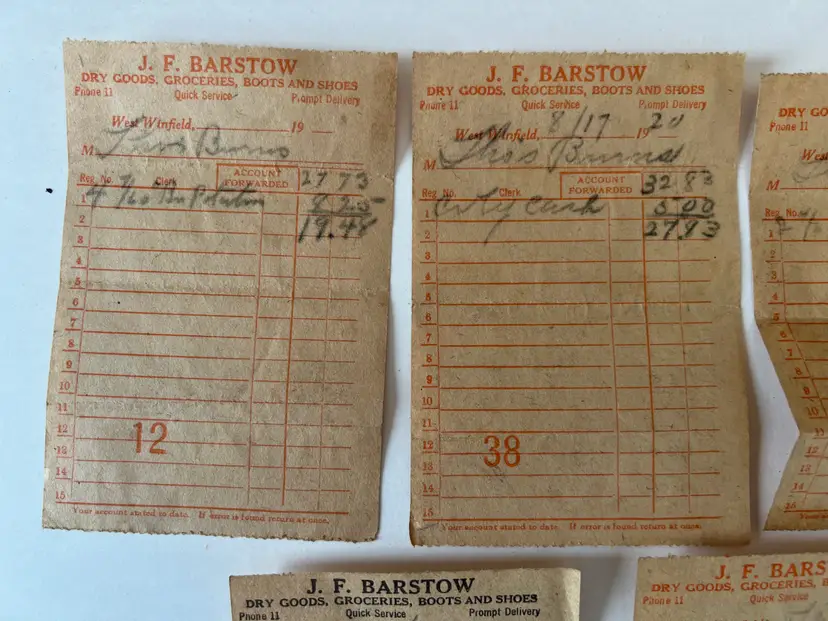 J. F. BARSTOW
DRY GOODS, GROCERIES, BOOTS AND SHOES
Phone 11 Quick Service Prompt Delivery
West Winfield, 19
M Thos Burns
Reg. No. Clerk ACCOUNT FORWARDED 27 73
1 4 7/60 Bu 8 25
2 19.48
3
4
5
6
7
8
9
10
11
12
13
14
15
12
Your account stated to date. If error is found return at once.
J. F. BARSTOW
DRY GOODS, GROCERIES, BOOTS AND SHOES
Phone 11 Quick Service Prompt Delivery
West Winfield, 8/17 1920
M Thos Burns
Reg. No. Clerk ACCOUNT FORWARDED 32 83
1 Cash 5 00
2 27 83
3
4
5
6
7
8
9
10
11
12
13
14
15
38
Your account stated to date. If error is found return at once.
DRY GO
Phone 11
West
M
Reg. No.
1
2
3
4
6
7
8
9
10
11
12
13
14
15
Your acco
J. F. BARSTOW
DRY GOODS, GROCERIES, BOOTS AND SHOES
Phone 11 Quick Service Prompt Delivery
J. F. BARS
DRY GOODS, GROCERIES, B
Phone 11 Quick Service